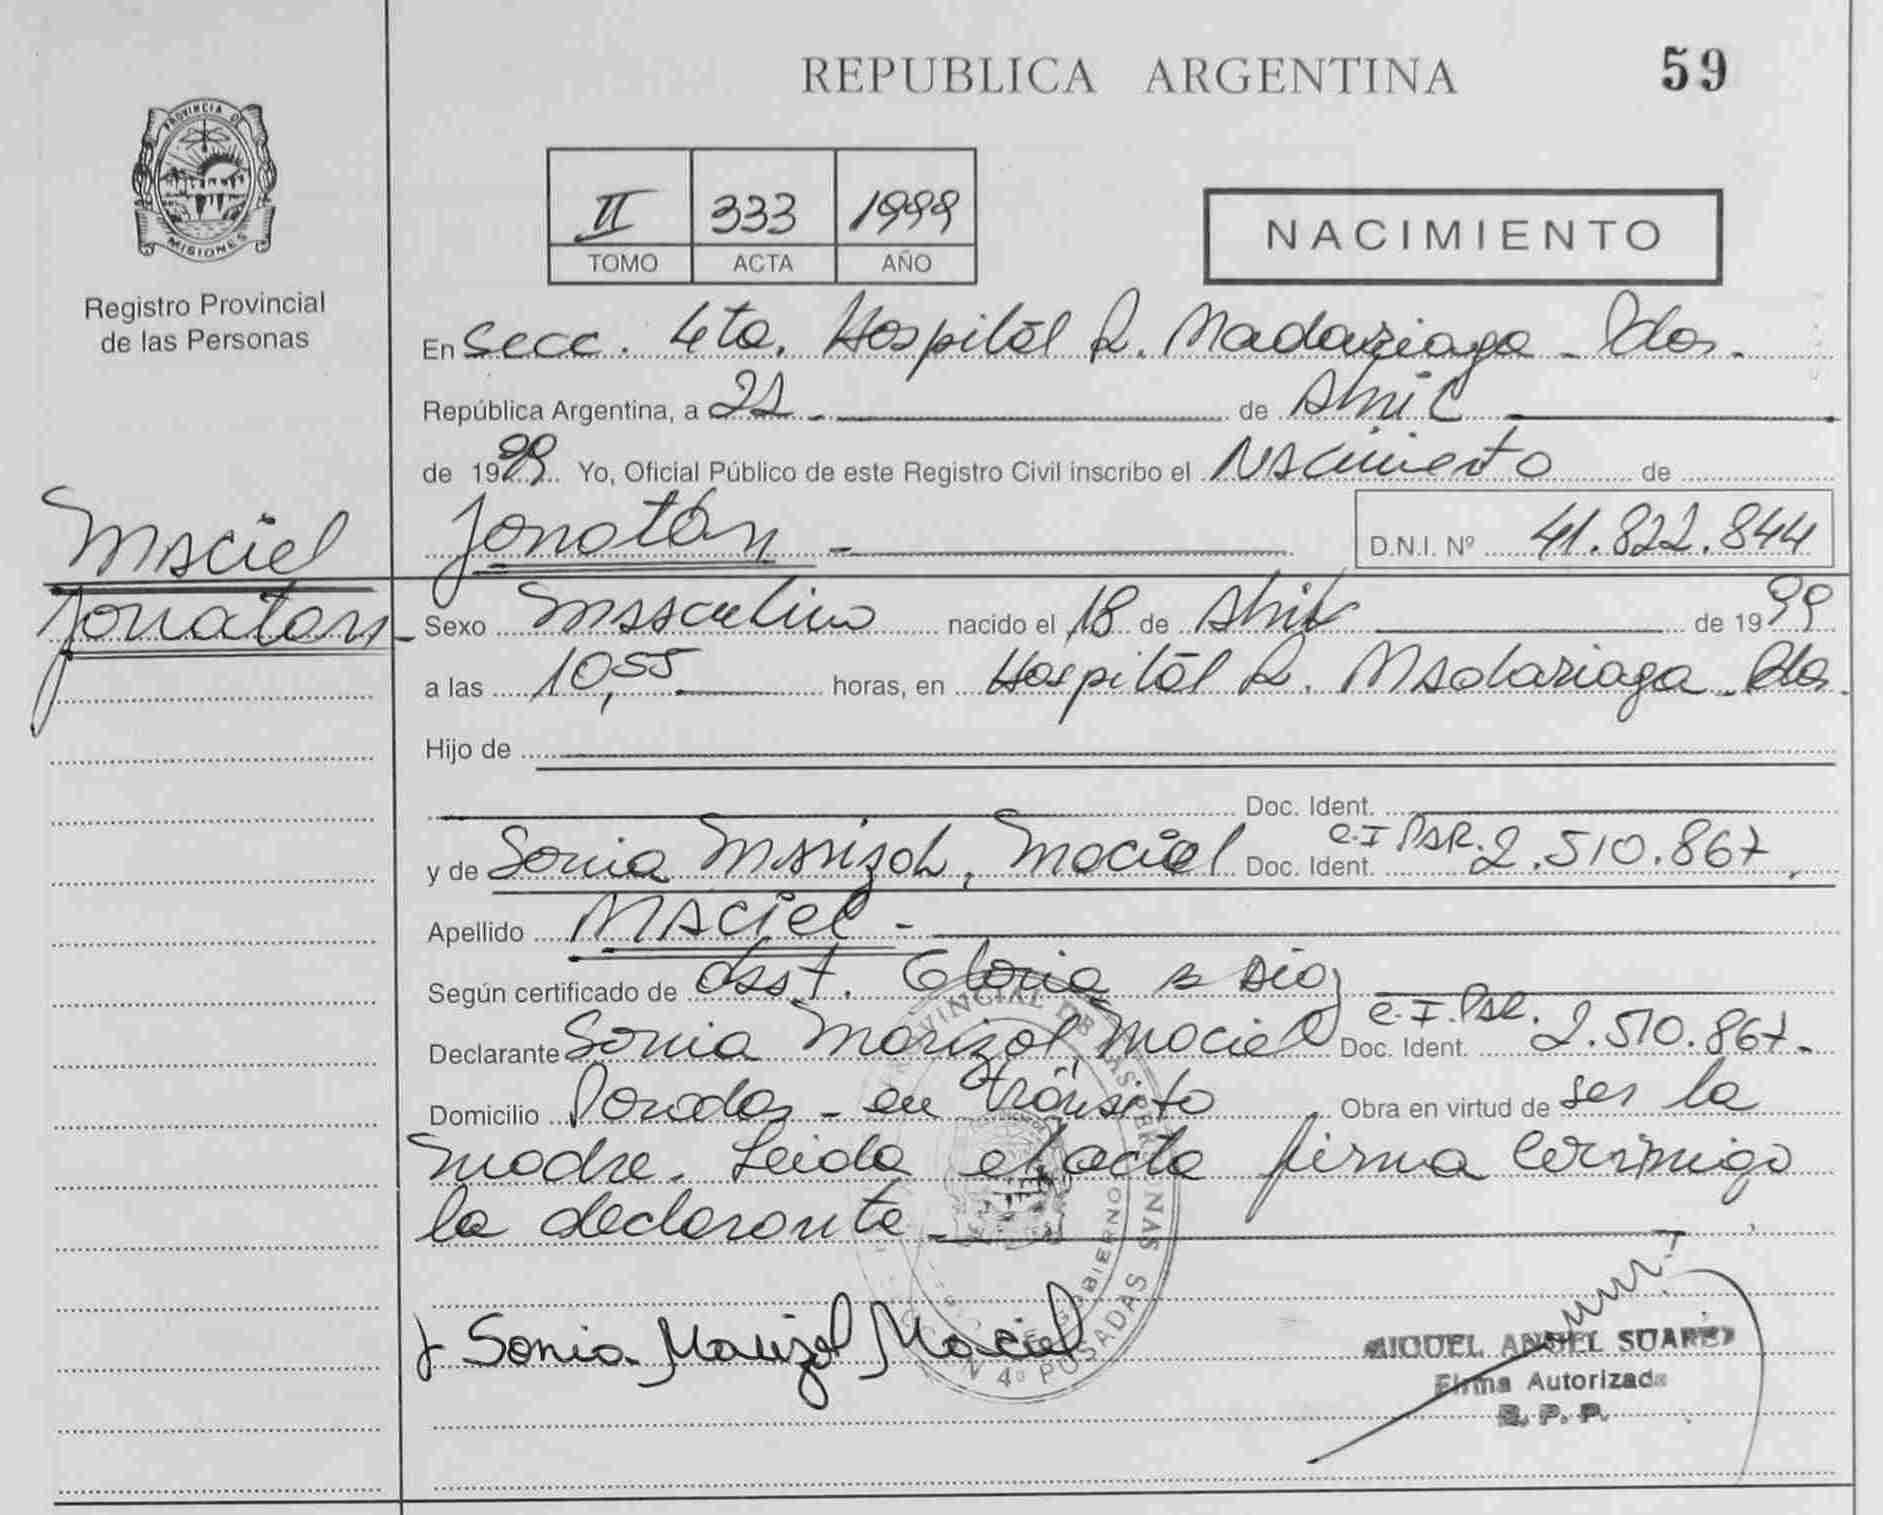 REPUBLICA ARGENTINA
59
PROVINCIA DE
MISIONES
Registro Provincial
de las Personas
II 333 1999
TOMO ACTA AÑO
NACIMIENTO
En Secc. 4ta. Hospital R. Madariaga - Pdas.
República Argentina, a 21 - de Abril
de 1999 Yo, Oficial Público de este Registro Civil inscribo el Nacimiento de
Jonatan - D.N.I. Nº 41.822.844
Maciel
Jonatan -
Sexo Masculino nacido el 18 de Abril de 1999
a las 10,55 horas, en Hospital R. Madariaga - Pdas.
Hijo de
Doc. Ident.
y de Sonia Marizol, Maciel Doc. Ident. C.I PAR. 2.510.867.
Apellido Maciel -
Según certificado de Obst. Gloria
Declarante Sonia Marizol Maciel Doc. Ident. C.I. PAR. 2.510.867.-
Domicilio Posadas - en tránsito Obra en virtud de ser la
madre. Leida el acta firma conmigo
la declarante
Sonia Marizol Maciel
4º POSADAS
MIGUEL ANGEL SUAREZ
Firma Autorizada
R. P. P.